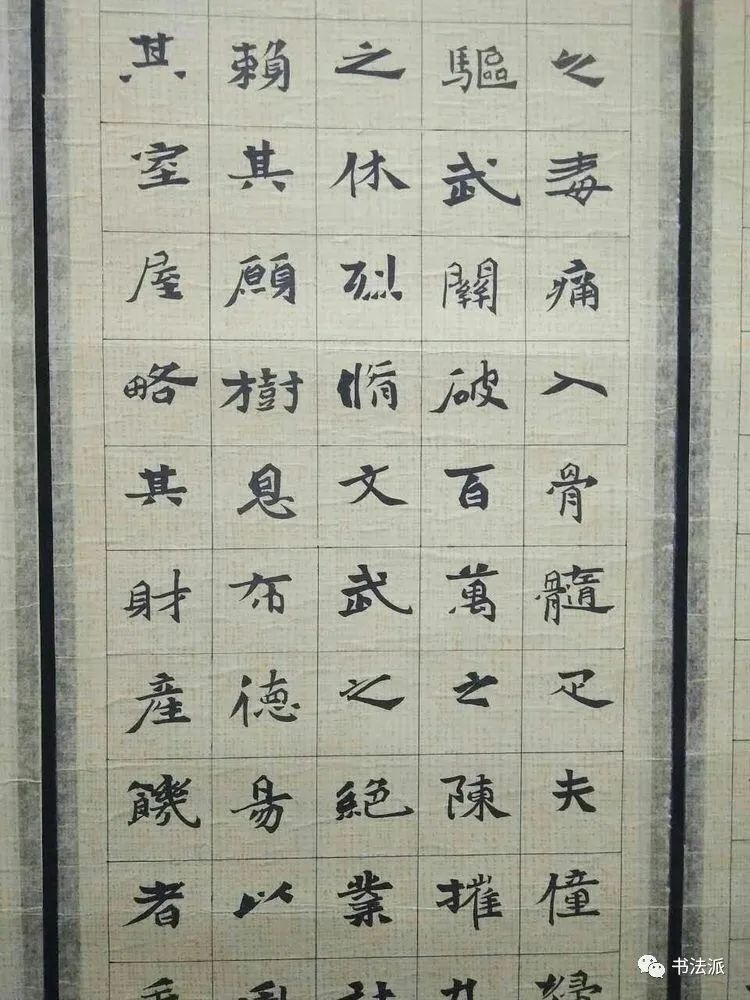 之毒痛入骨髓疋夫僮婦
驅武關破百萬之陳摧九
之休烈脩文武之絕業社
賴其願樹恩布德易以
其室屋略其財產饑者
书法派